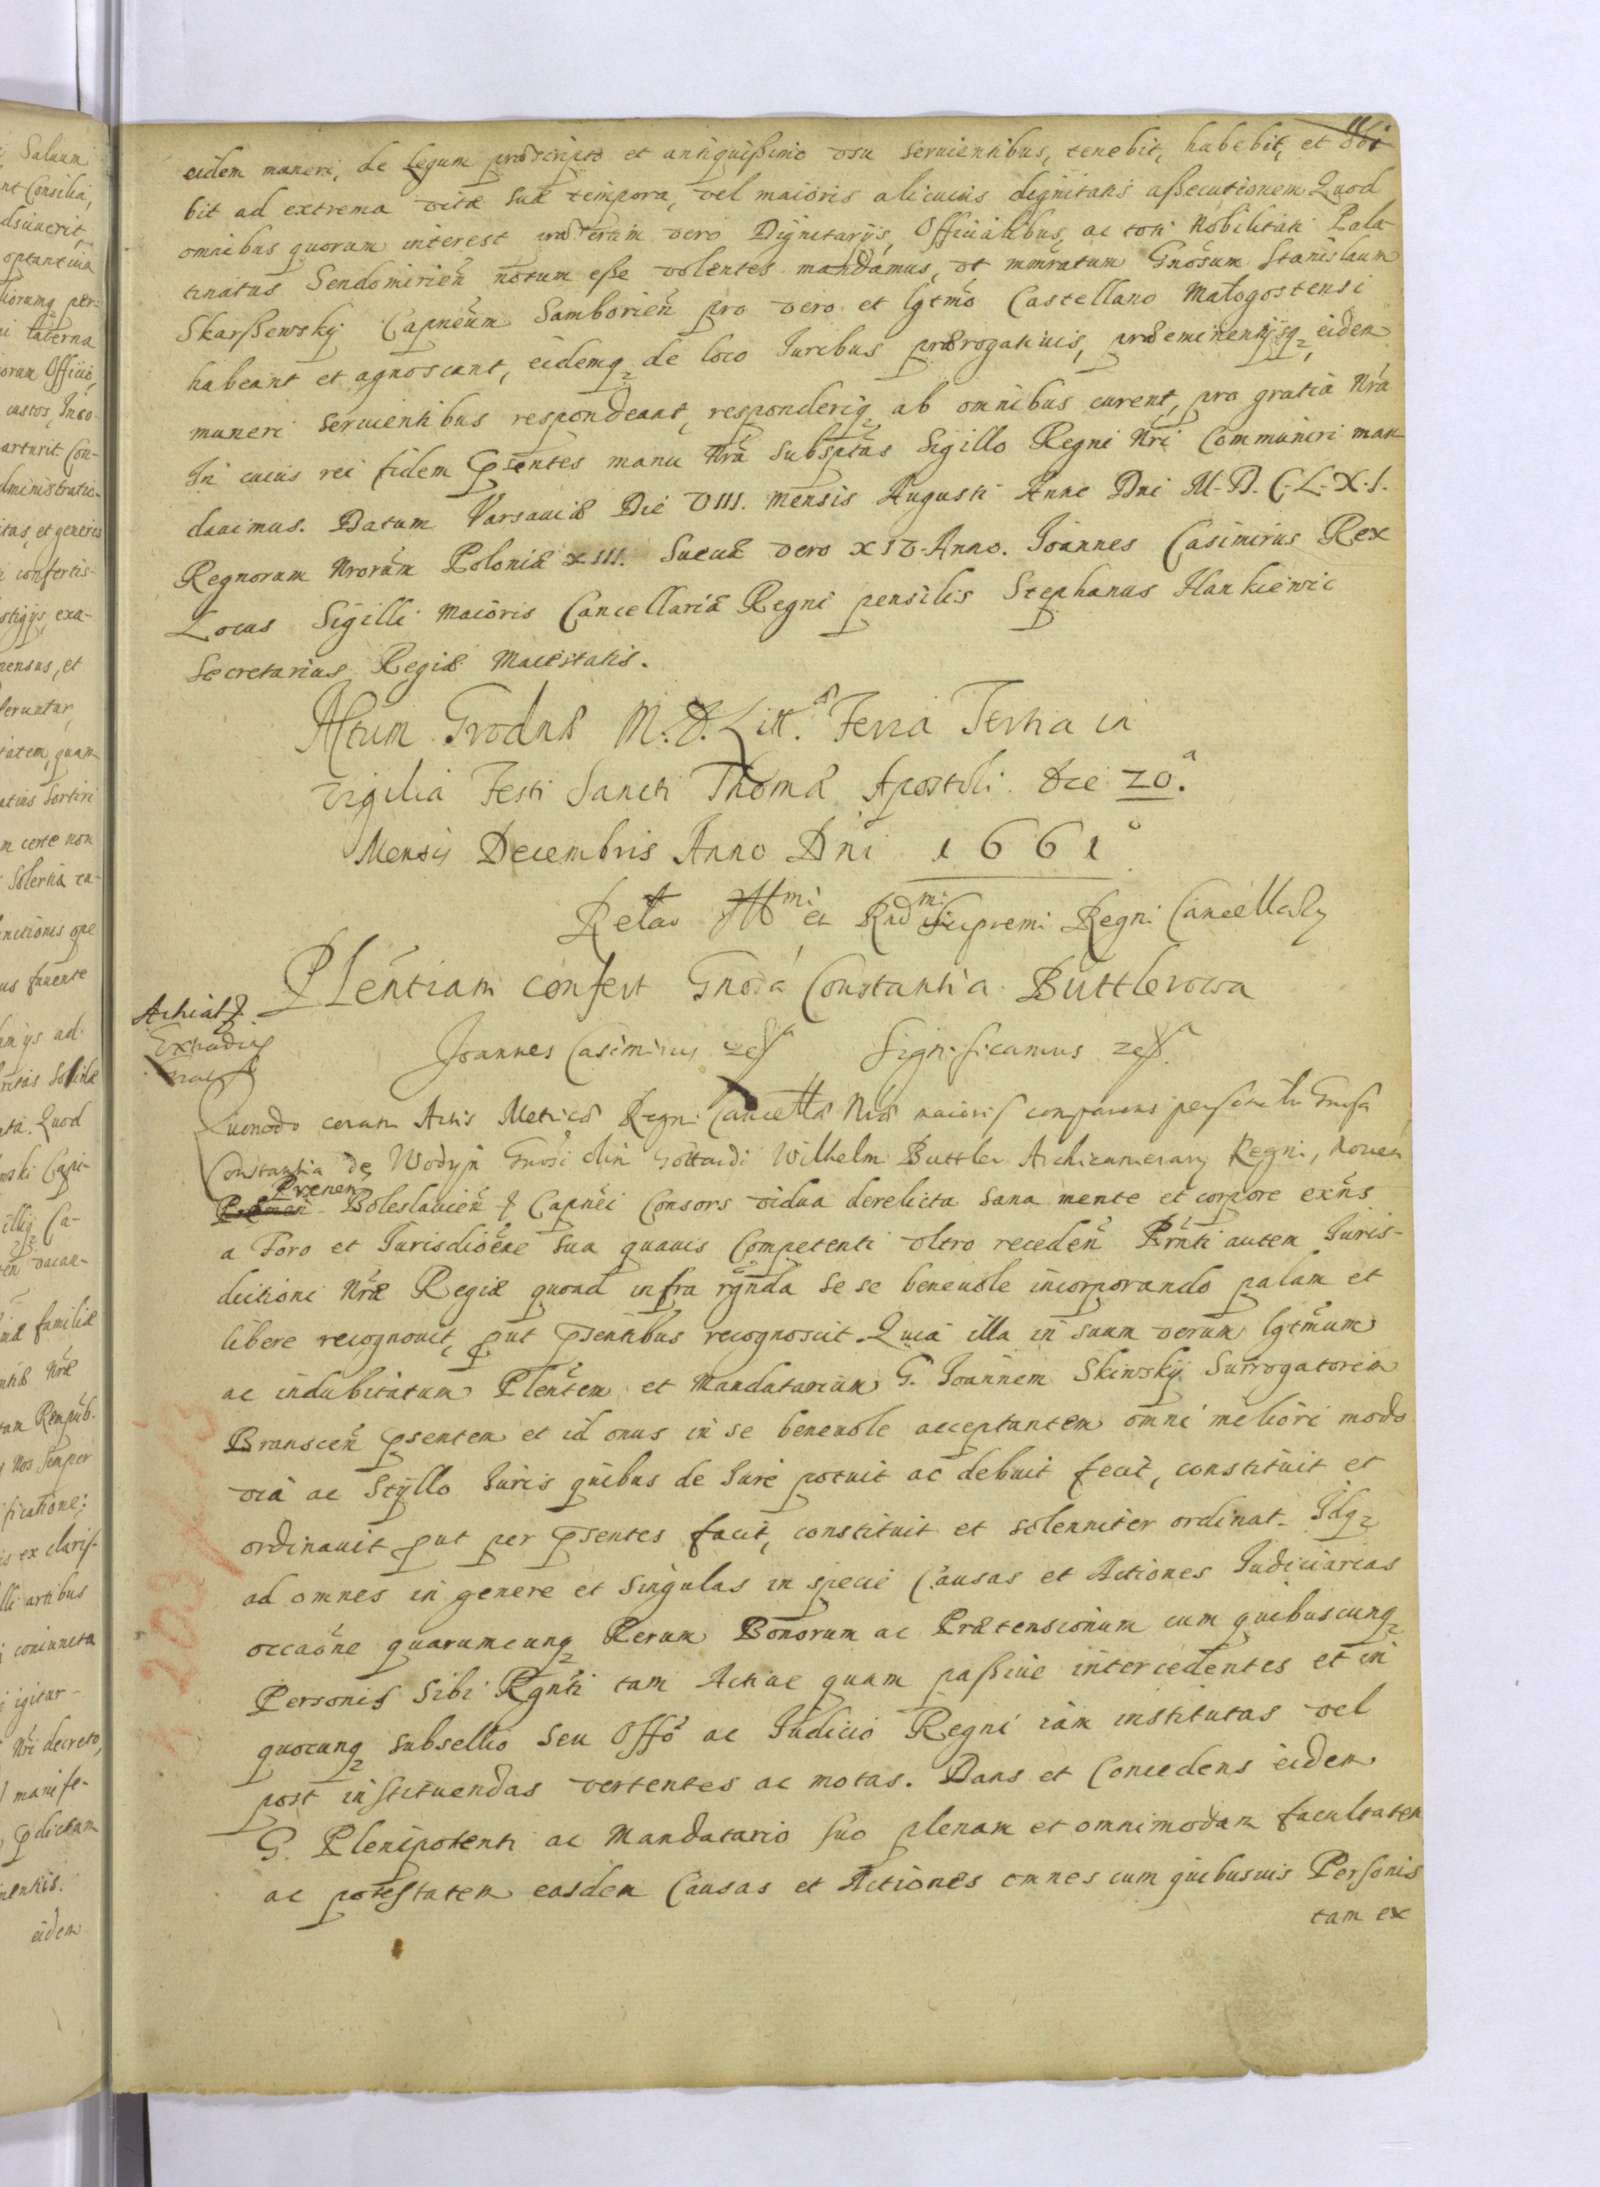 eidem muneri, de Legum præscripto et antiquißimo vsu seruientibus, tenebit, habebit, et
bit ad extrema vitæ suæ tempora, vel maioris alicuius dignitatis aßecutionem Quod
omnibus quorum interest præsertim vero Dignitarijs, Officialibus, ac toti Nobilitati Pala
tinatus Sendomirien̄ notum eße volentes mandamus, vt mmratum Gnosum Stanislaum
Skarßewskÿ Capneum Samborien̄ pro vero et lgtmo Castellano Małogostensi
habeant et agnoscant, eidemq₂ de loco Iuribus prærogatiuis, præeminentijsq₂ eidem
muneri seruientibus respondeant, responderiq₂ ab omnibus curent, pro gratia Nrá
In cuius rei fidem Psentes manu Nrá subsptas Sigillo Regni Nri Communiri man
dauimus. Datum Varsauiæ Die VIII. Mensis Augusti Anno Dni M.D.C.L.X.I.
Regnorum Nrorum Poloniæ XIII. Sueciæ vero XIV. Anno. Ioannes Casimirus Rex
Locus Sigilli Maioris Cancellariæ Regni pensilis Stephanus Hankiewic
Secretarius Regiæ Maiestatis.
Actum Grodnæ M. D. Litt. Feria Tertia in
Vigilia Festi Sancti Thomæ Apostoli. Die 20.ᵃ
Mensis Decembris Anno Dni 1661°
Relao Illmi et Rndmi Supremi Regni Cancellarij
Plentiam confert Gnosa Constantia Buttlerowa
Ioannes Casimirus Significamus
Quomodo coram Actis Metrices Regni Cancellæ Nræ maioris comparens personaltr Gnosa
Constantia de Wodyn Gnosi olim Gottardi Wilhelm Buttler Archicamerarij Regni, Nouen
Prenen
Boleslauien̄ & Capnei Consors vidua derelicta sana mente et corpore exns
a Foro et Iurisdioene sua quauis Competenti vltro receden̄ Prnti autem Iuris-
dictioni Nræ Regiæ quoad infra rgnda se se beneuole incorporando palam et
libere recognouit, put psentibus recognoscit. Quia illa in suum verum lgtmum
ac indubitatum Plentem et Mandatarium G. Ioannem Skiwskÿ Surrogatorem
Branscen̄ psentem et id onus in se beneuole acceptantem omni meliori modo
via ac Stÿllo Iuris quibus de Iure potuit ac debuit fecit, constituit et
ordinauit put per psentes facit, constituit et solenniter ordinat. Idq₂
ad omnes in genere et singulas in specie Causas et Actiones Iudiciarias
occaone quarumcunq₂ Rerum Bonorum ac Prætensionum cum quibuscunq₂
Personis sibi Rgnti tam Actiue quam paßiue intercedentes et in
quocunq₂ subsellio seu Offo ac Iudicio Regni iam institutas vel
post instituendas vertentes ac motas. Dans et Concedens eidem
G. Plenipotenti ac Mandatario suo plenam et omnimodam facultatem
ac potestatem easdem Causas et Actiones omnes cum quibusuis Personis
tam ex